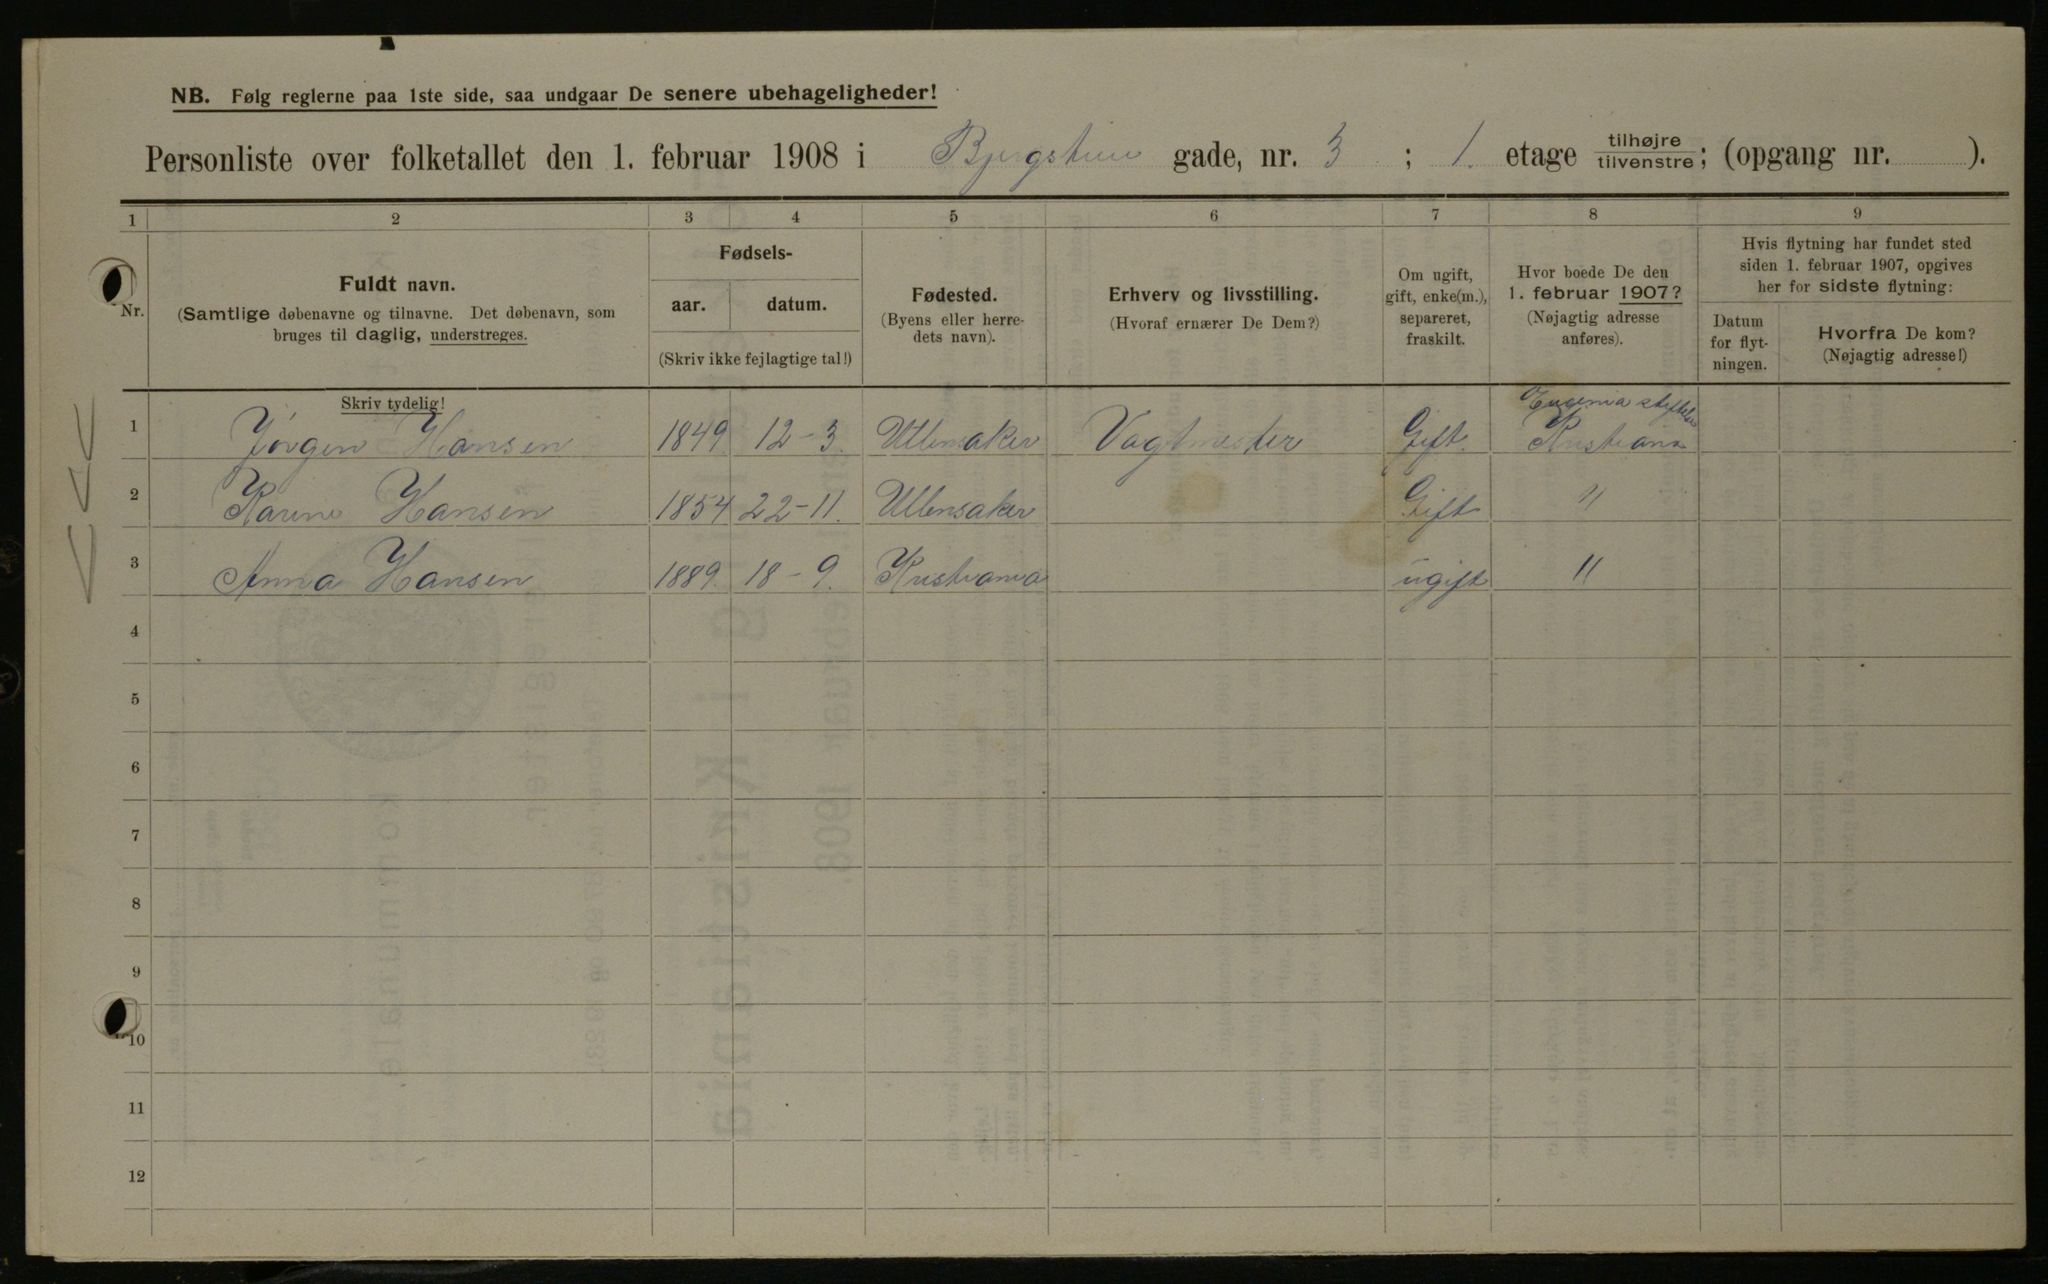 NB. Følg reglerne paa 1ste side, saa undgaar De senere ubehageligheder!
Personliste over folketallet den 1. februar 1908 i Bjergstien gade, nr. 3 ; 1. etage tilhøjre tilvenstre; (opgang nr. ).
1 2 3 4 5 6 7 8 9
Nr.
Fuldt navn.
(Samtlige døbenavne og tilnavne. Det døbenavn, som
bruges til daglig, understreges.
Skriv tydelig!
Fødsels-
aar. datum.
(Skriv ikke fejlagtige tal!)
Fødested.
(Byens eller herre-
dets navn).
Erhverv og livsstilling.
(Hvoraf ernærer De Dem?)
Om ugift,
gift, enke(m.),
separeret,
fraskilt.
Hvor boede De den
1. februar 1907?
(Nøjagtig adresse
anføres).
Hvis flytning har fundet sted
siden 1. februar 1907, opgives
her for sidste flytning:
Datum
for flyt-
ningen.
Hvorfra De kom?
(Nøjagtig adresse!)
Eugenia stiftelse
1 Jörgen Hansen 1849 12-3. Ullensaker Vagtmester Gift. Kristiania
2 Karine Hansen 1854 22-11. Ullensaker Gift "
3 Anna Hansen 1889. 18-9. Kristiania ugift "
4
5
6
7
8
9
10
11
12